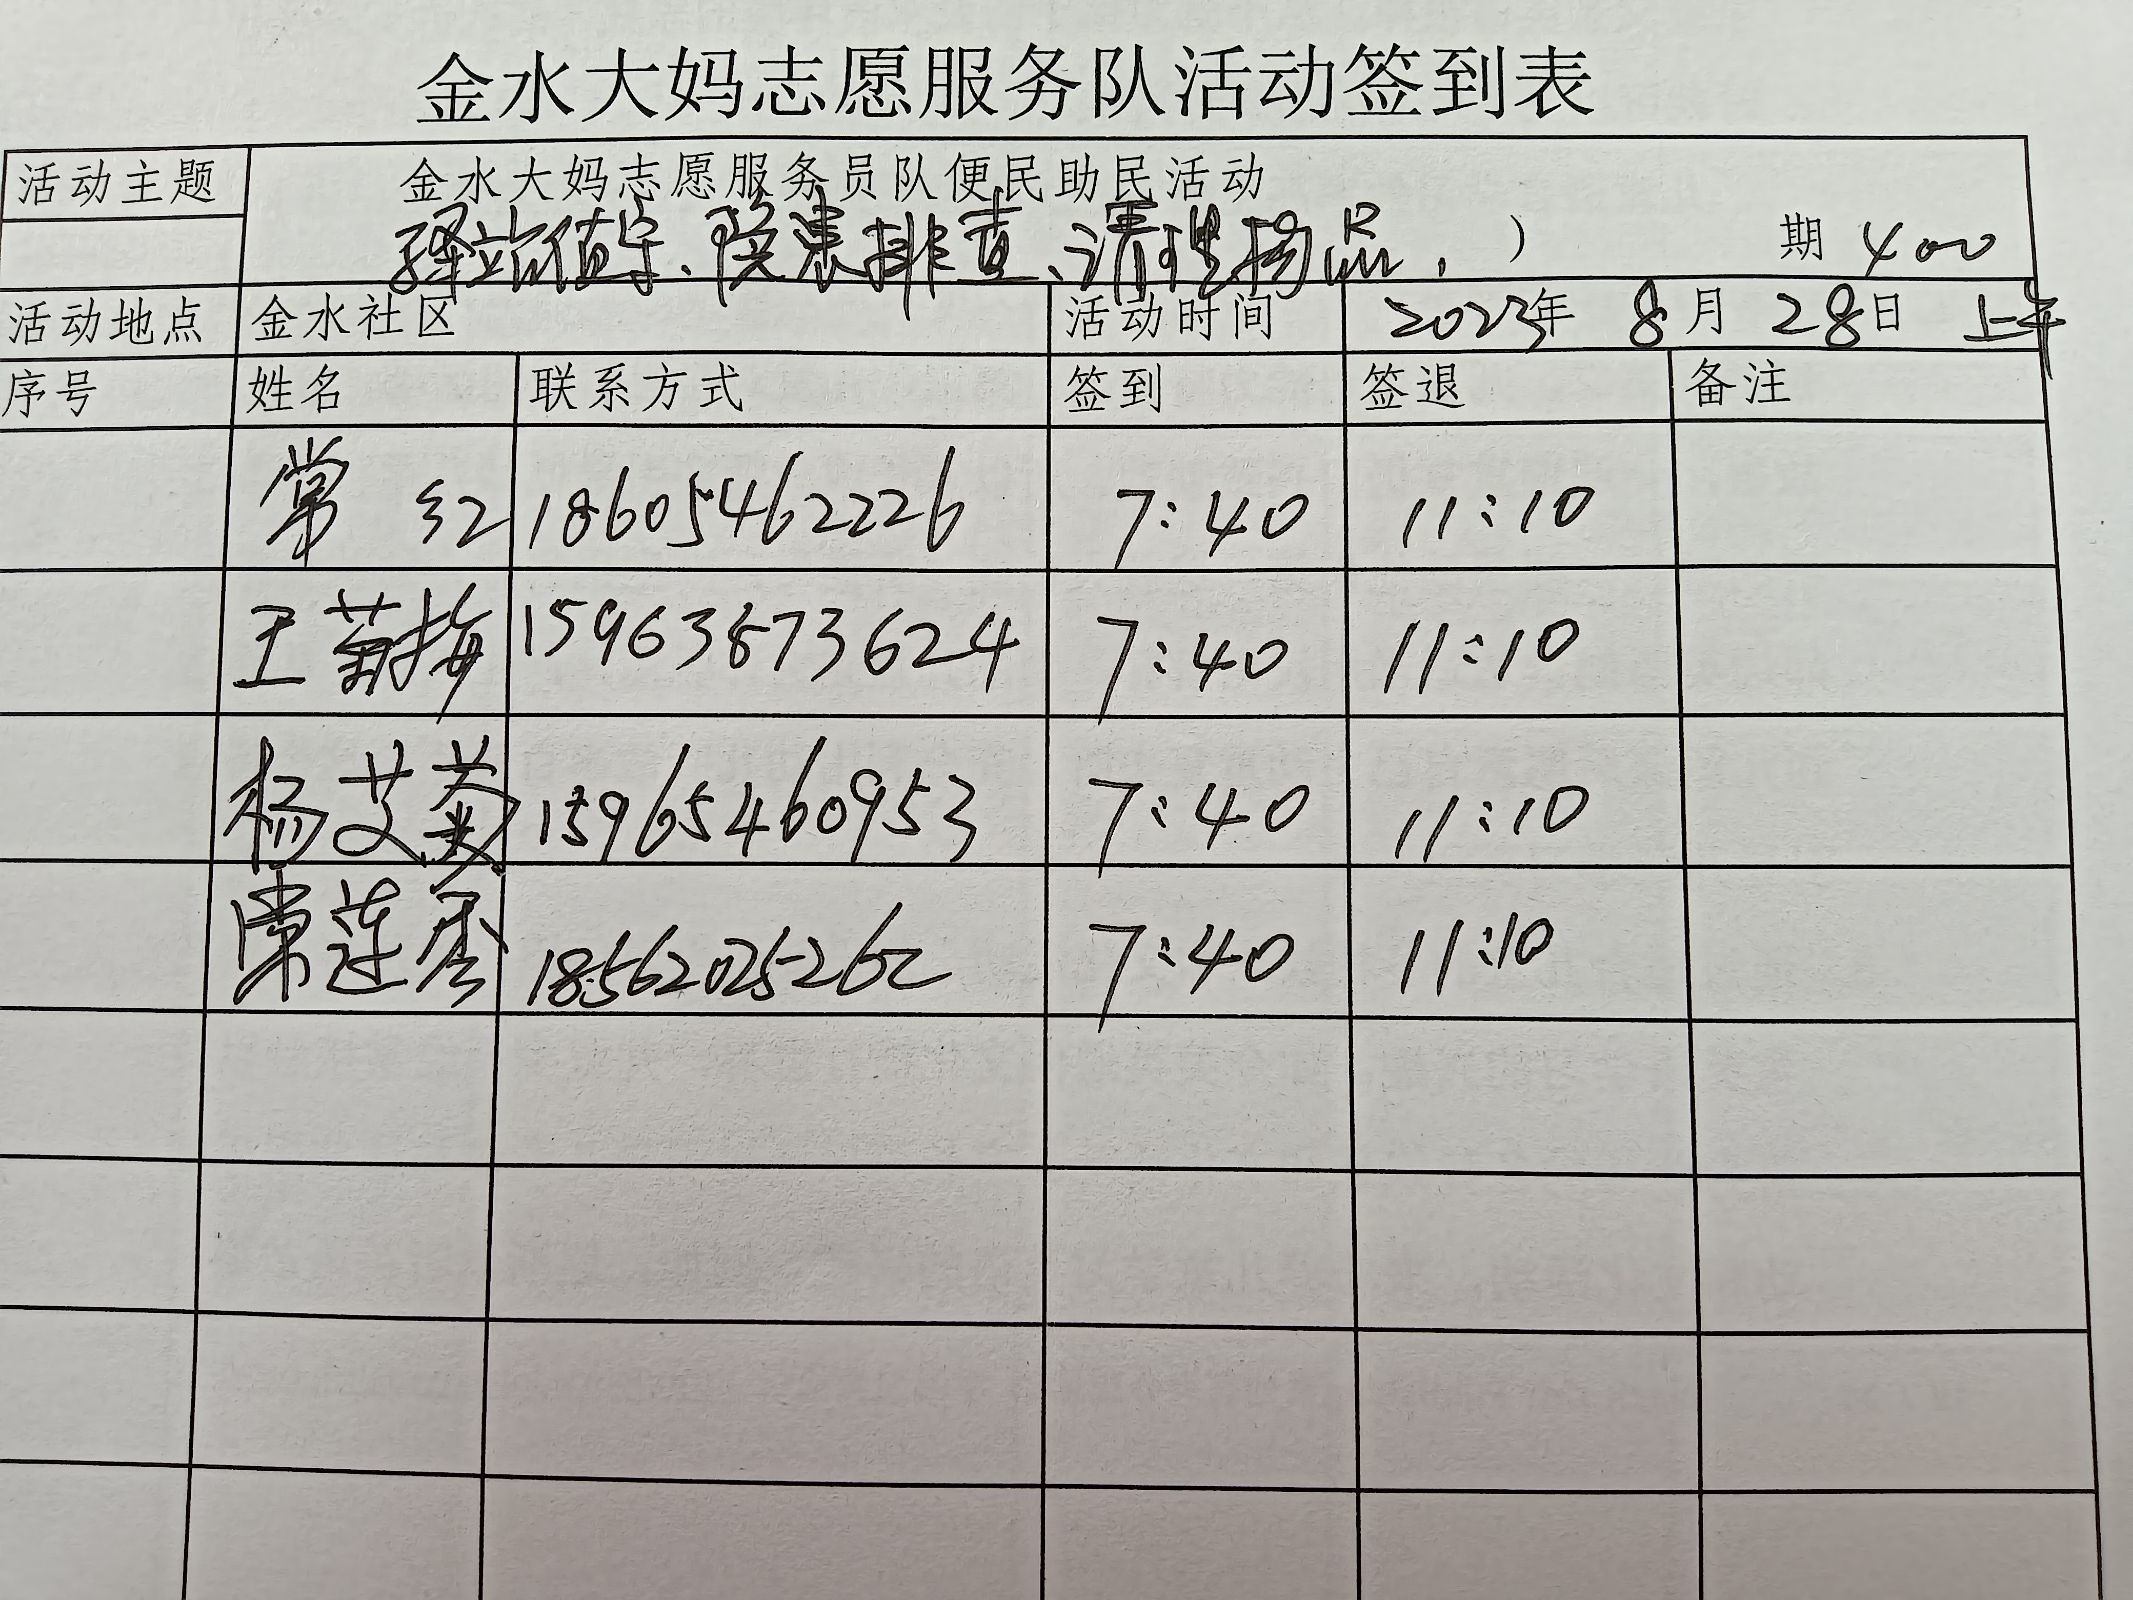 金水大妈志愿服务队活动签到表
活动主题 金水大妈志愿服务员队便民助民活动
驿站值守、隐患排查、清理物品，） 期 400
活动地点 金水社区 活动时间 2023年 8月 28日 上午
序号 姓名 联系方式 签到 签退 备注
常红 18605462226 7:40 11:10
王菊梅 15963873624 7:40 11:10
杨艾菊 15965460953 7:40 11:10
常莲秀 18562025262 7:40 11:10